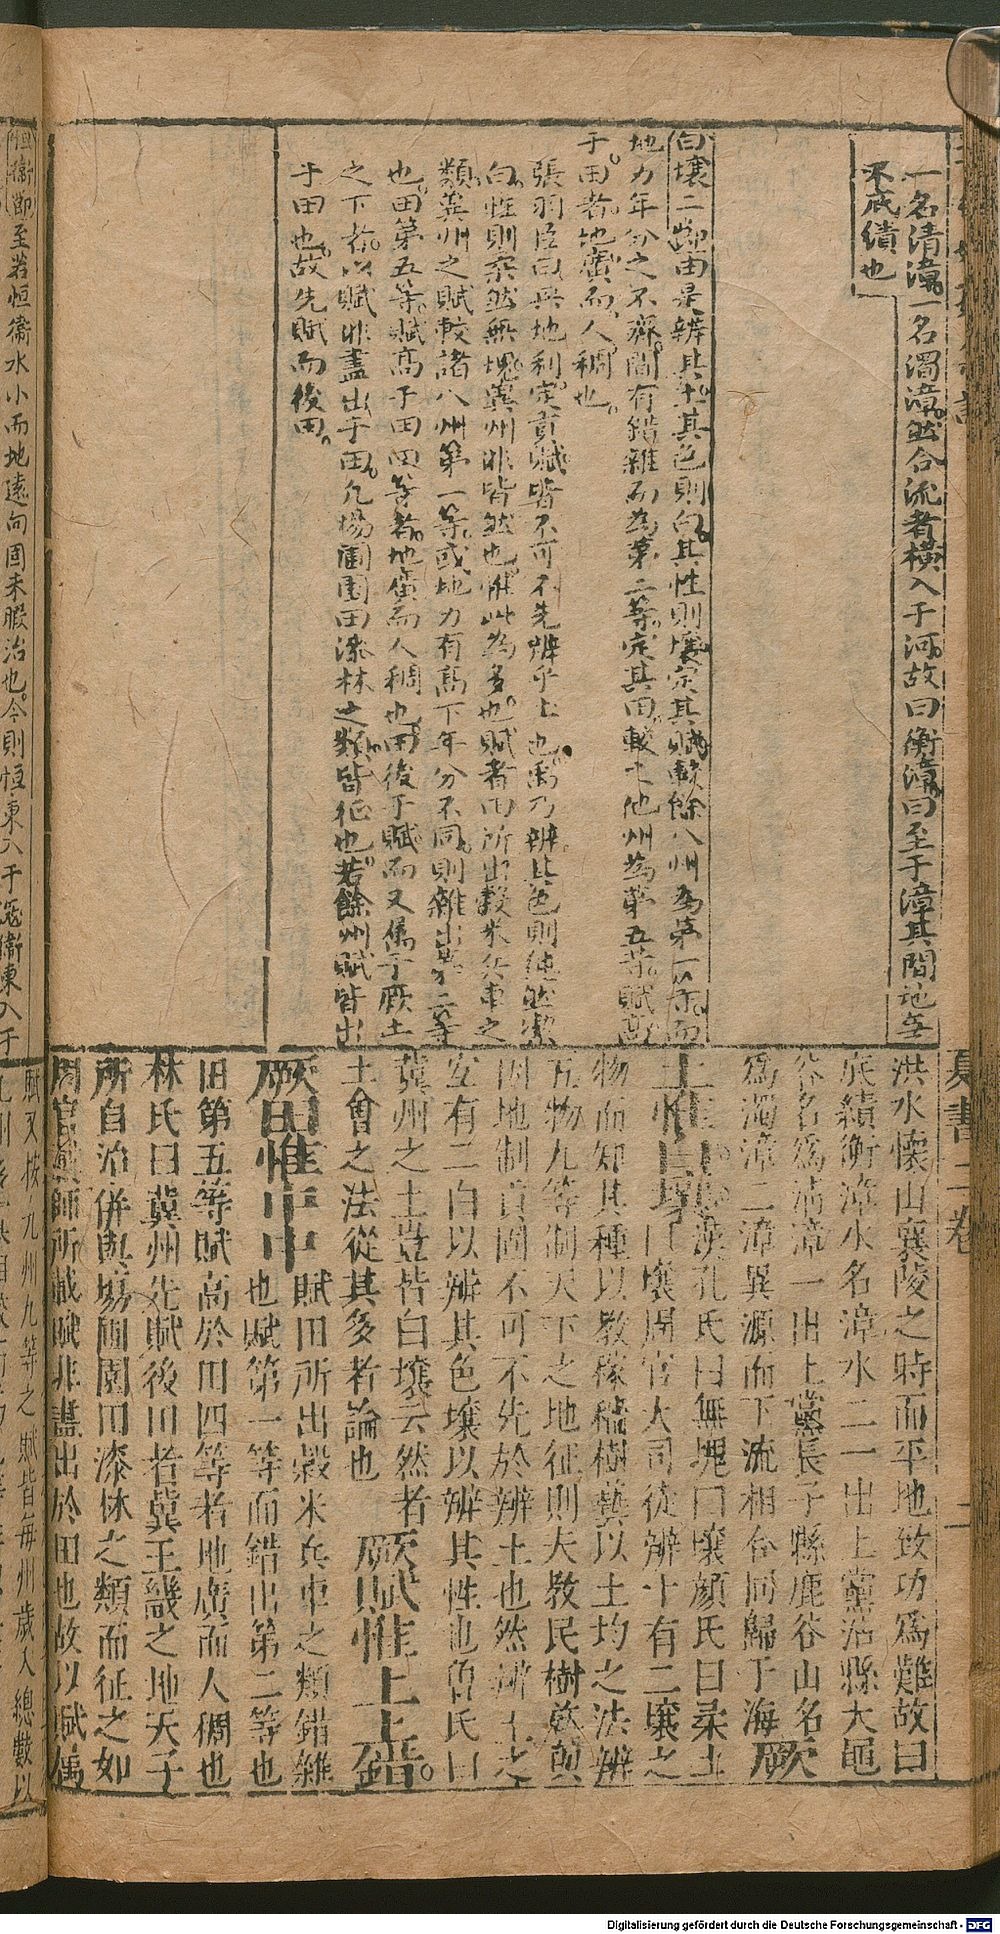 一名清漳一名濁漳然合流者橫入于河故曰衡漳曰至于漳其間地無
不底績也
白壤二節由是辨其土其色則白其性則壤定其賦較餘八州為第一等而
地力年分之不齊間有錯雜而為第二等定其田較之他州為第五等賦高
于田者地廣而人稠也
張羽臣曰興地利定貢賦皆不可不先辨乎土也禹乃辨其色則純然潔
白性則柔然無塊冀州非皆然也惟此為多也賦者田所出穀米兵車之
類冀州之賦較諸八州第一等或地力有高下年分不同則雜出第二等
也田第五等賦高于田四等者地廣而人稠也田後于賦而又屬于厥土
之下者以賦非盡出于田凡場圃園田漆林之類皆征也若餘州賦皆出
于田也故先賦而後田
夏書二卷 二
洪水懷山襄陵之時而平地致功爲難故曰
底績衡漳水名漳水二一出上黨沾縣大黽
谷名爲清漳一出上黨長子縣鹿谷山名
爲濁漳二漳異源而下流相合同歸于海厥
土惟白壤漢孔氏曰無塊曰壤顏氏曰柔土
曰壤周官大司徒辨十有二壤之
物而知其種以教稼穡樹藝以土均之法辨
五物九等制天下之地征則夫教民樹藝與
因地制貢固不可不先於辨土也然辨土之
宜有二白以辨其色壤以辨其性也曾氏曰
冀州之土豈皆白壤云然者
土會之法從其多者論也厥賦惟上上錯
厥田惟中中賦田所出穀米兵車之類錯雜
也賦第一等而錯出第二等也
田第五等賦高於田四等者地廣而人稠也
林氏曰冀州先賦後田者冀王畿之地天子
所自治併與場圃園田漆林之類而征之如
周官載師所載賦非盡出於田也故以賦屬
恒衛節至若恒衛水小而地遠向固未暇治也今則恒東入于滱衛東入于
賦又按九州九等之賦皆每州歲入總數以
Digitalisierung gefördert durch die Deutsche Forschungsgemeinschaft - DFG